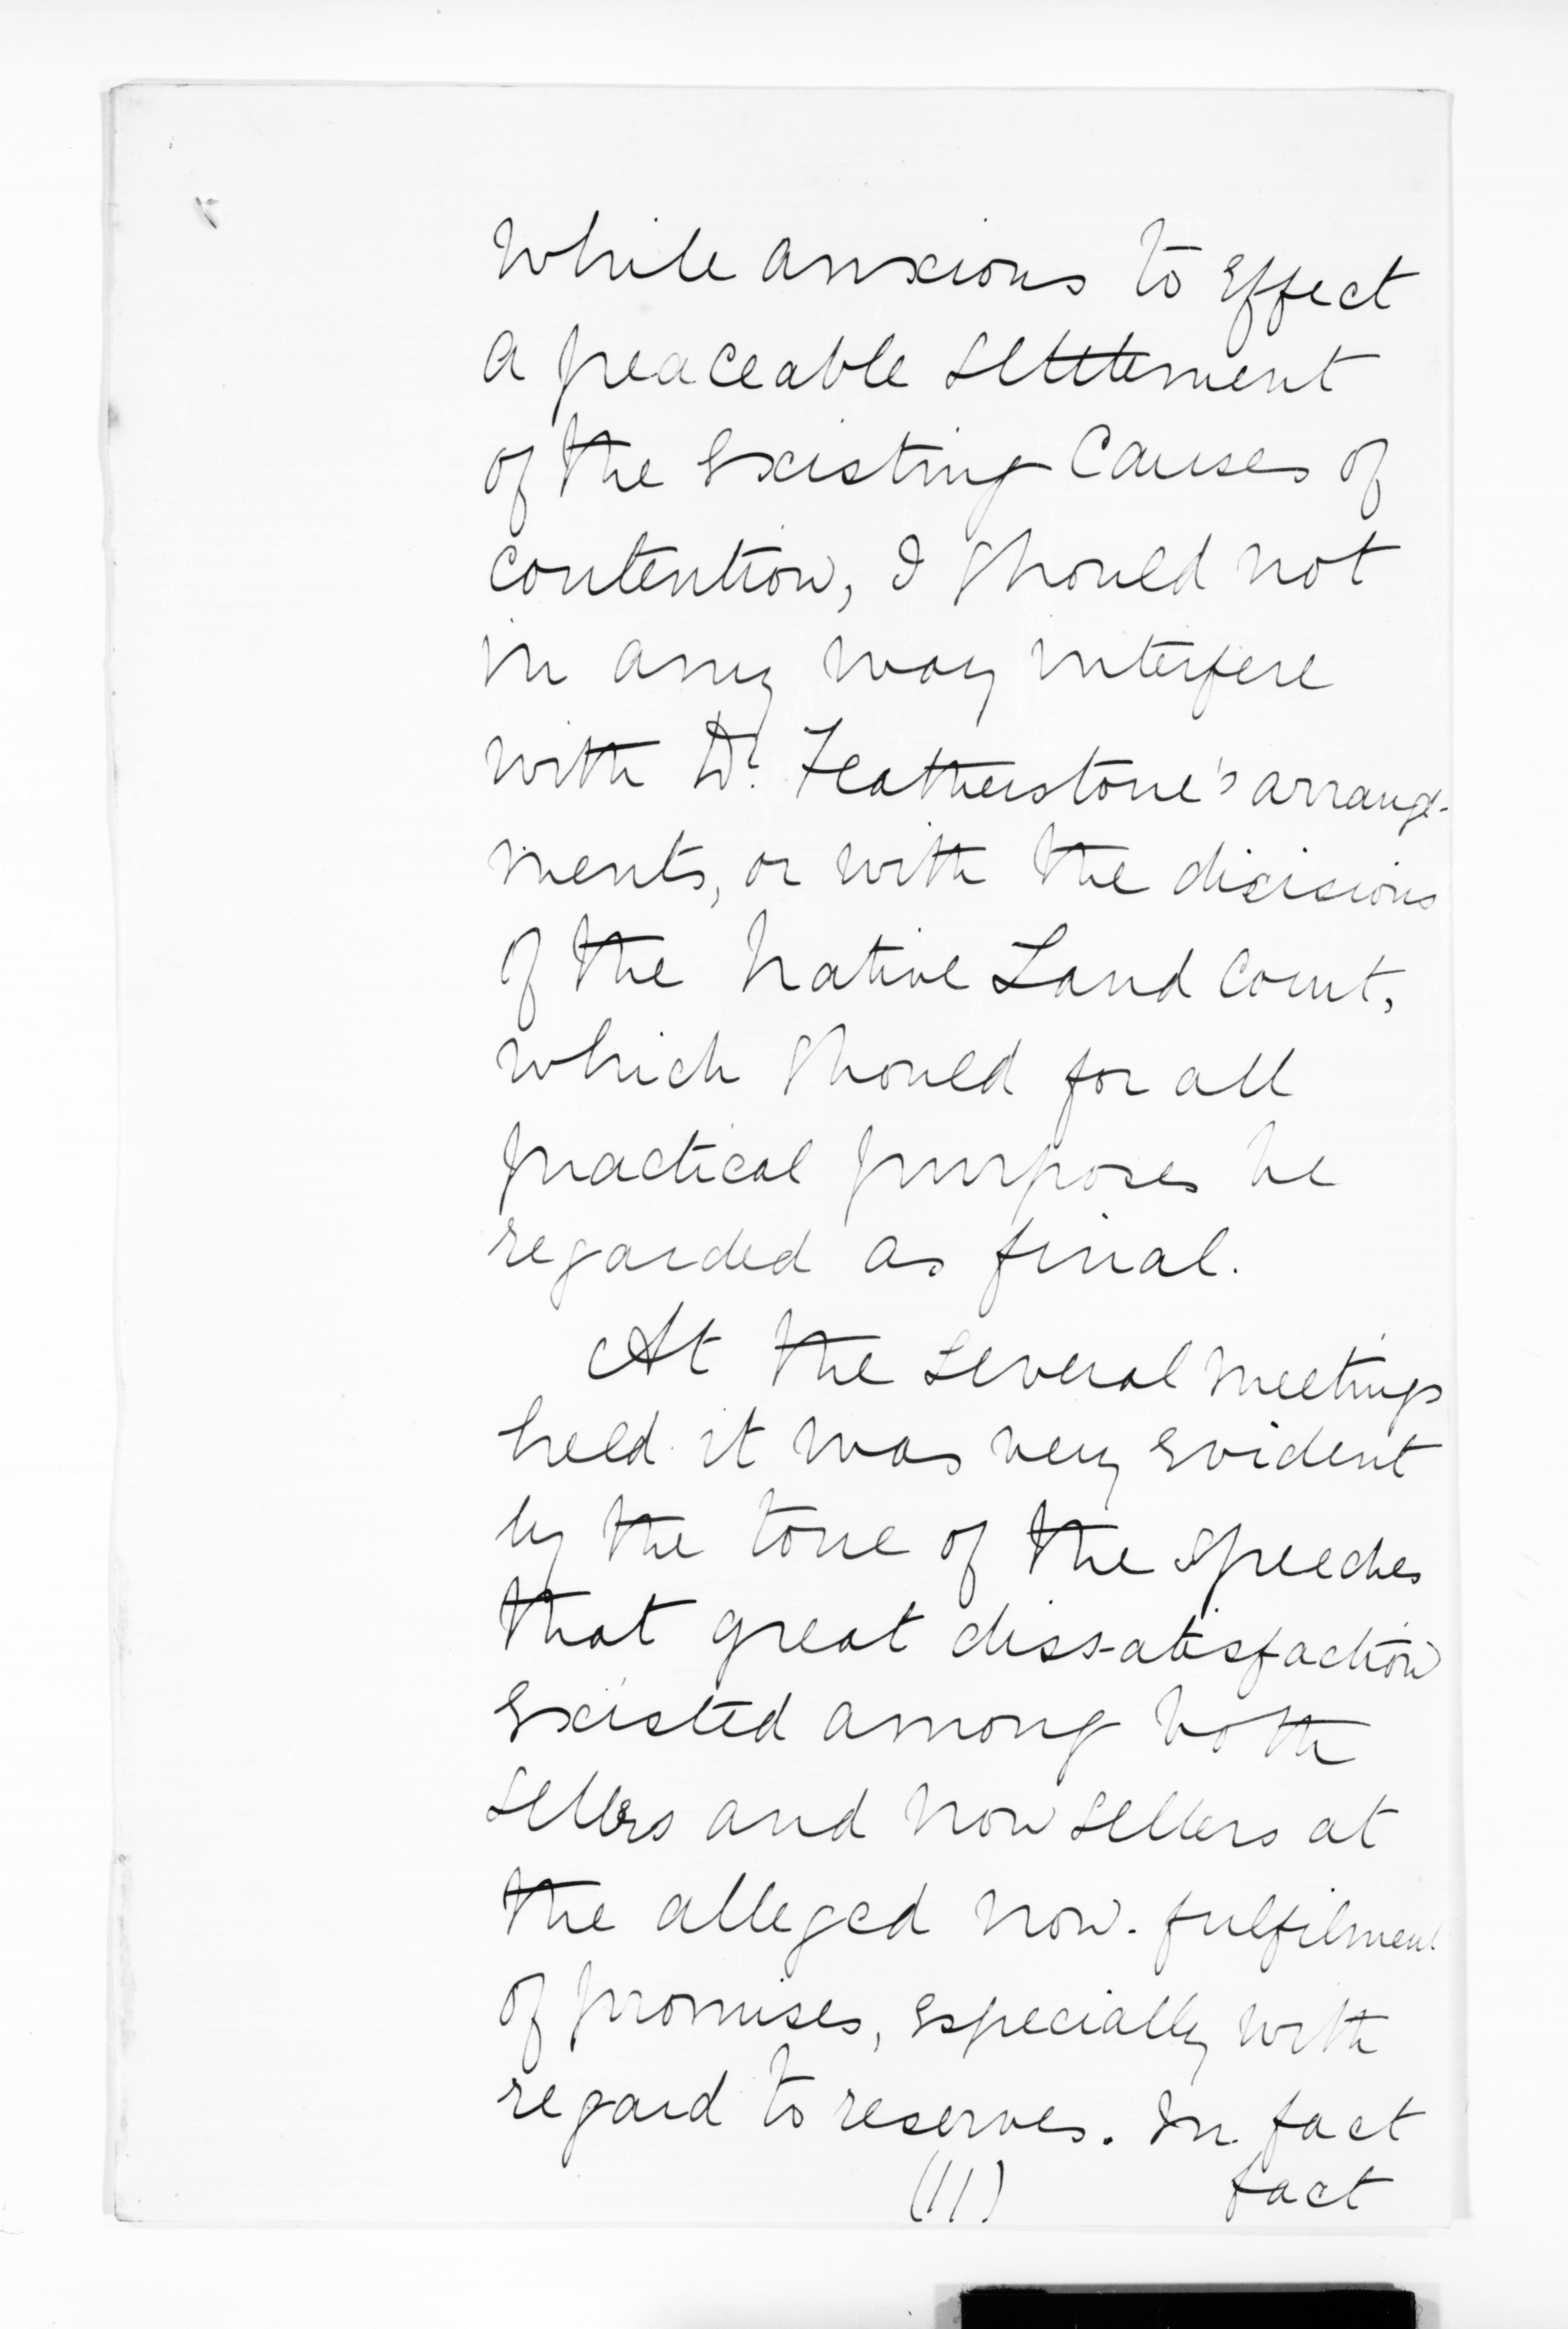 while anxious to effect
a peaceable settlement
of the existing causes of
contention, I should not
in any way interfere
with Dr. Featherstone's arrange-
ments, or with the dicisions
of the Native Land Court,
which should for all
practical purposes be
regarded as final.
At the several meetings
held it was very evident
by the tone of the speeches
that great dissatisfaction
existed among both
sellers and non sellers at
the alleged non-fulfilment
of promises, especially with
regard to reserves. In fact
(11) fact